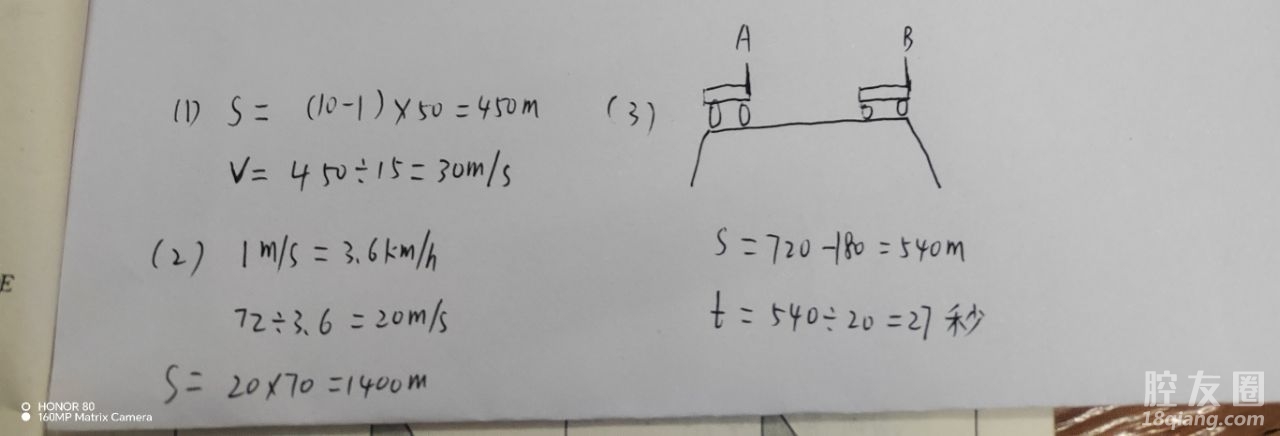 (1) S = (10-1)×50=450m
V= 450÷15=30m/s
(2) 1m/s=3.6km/h
72÷3.6=20m/s
S= 20×70=1400m
(3)
A B
S=720-180=540m
t=540÷20=27秒
E
HONOR 80
160MP Matrix Camera
腔友圈
18qiang.com